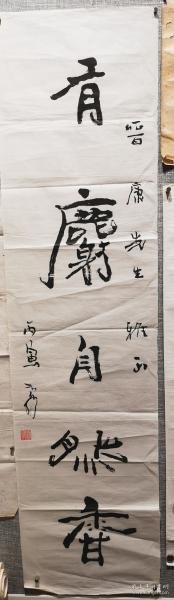 有麝自然香
晋康先生雅正
丙寅